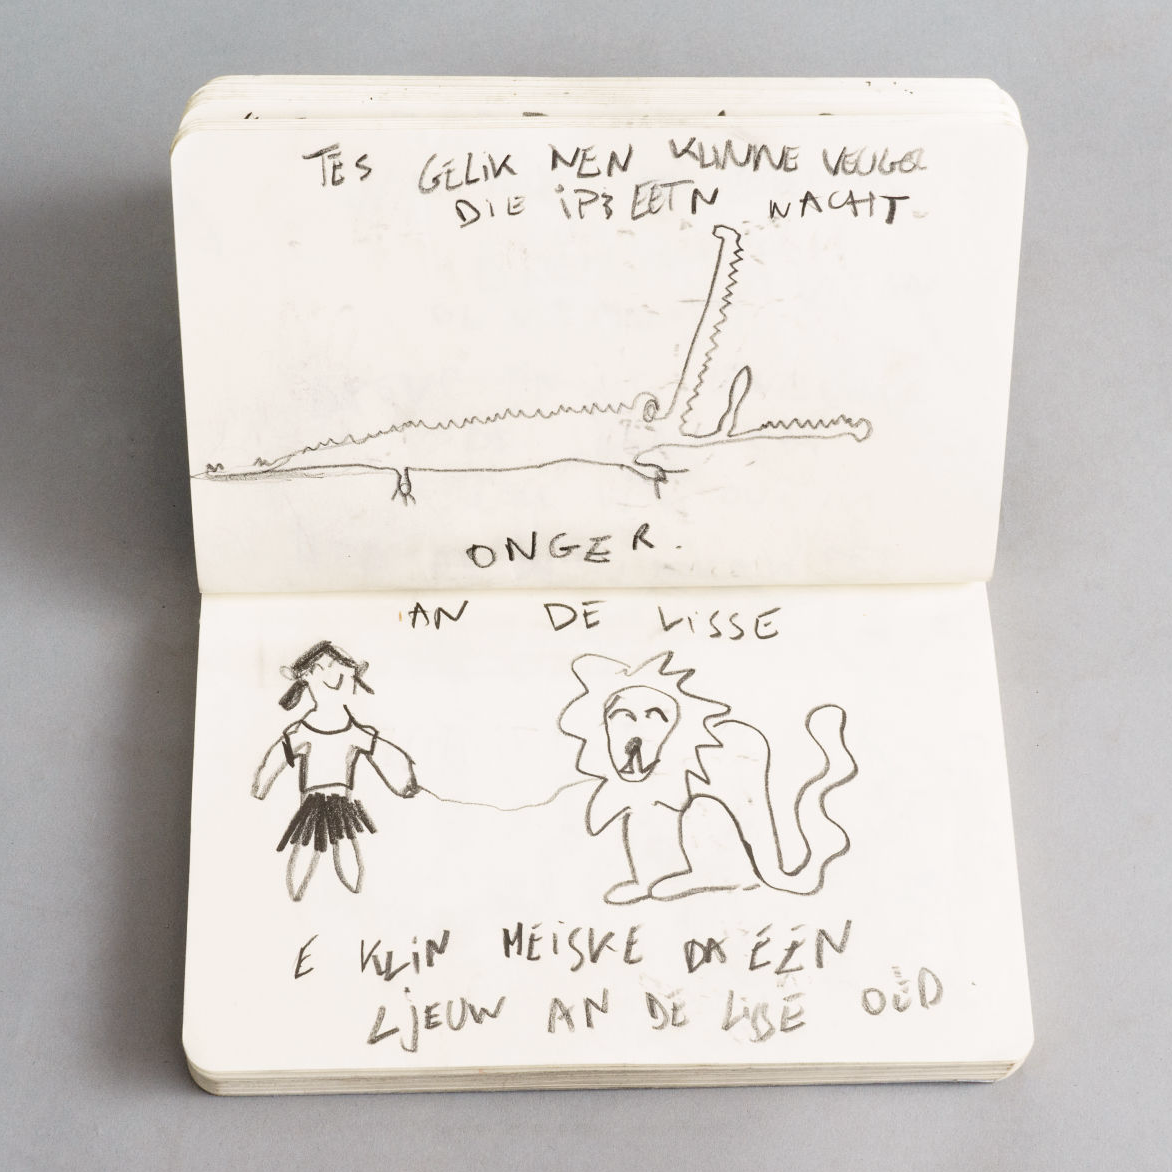 TES GELIK NEN KLINNE VEUGEL
DIE IP3 EETN WACHT.
ONGER.
AN DE LISSE
E KLIN MEISKE DA ÉÉN
LJEUW AN DE LISSE OED